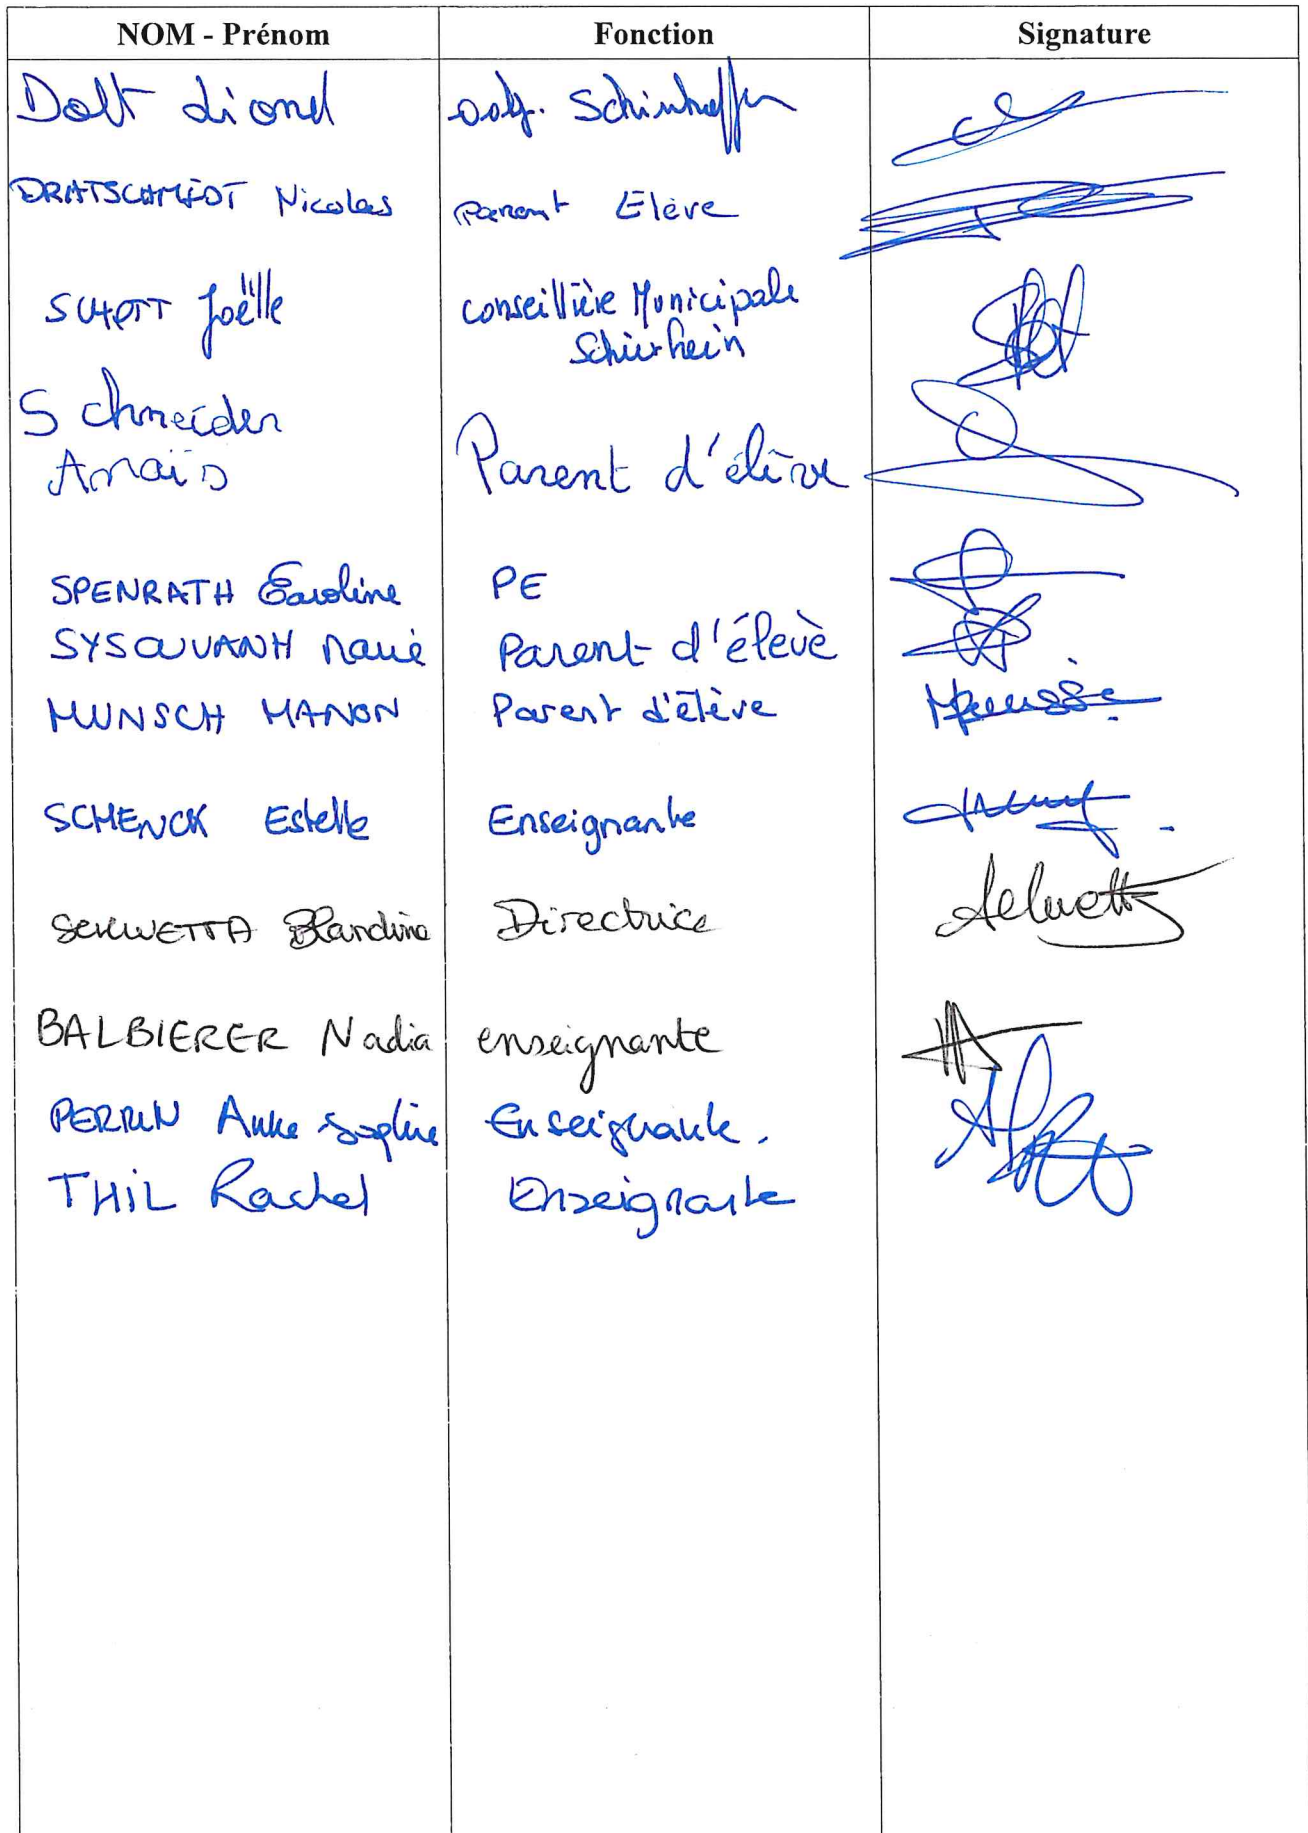 NOM - Prénom Fonction Signature
Dolt Lionel adj. Schirrhoffen
DRATSCHMIDT Nicolas Parent Elève
SCHOTT Joëlle conseillière Municipale
Schirrhein
Schneider
Anaïs Parent d'élève
SPENRATH Caroline PE
SYSOUVANH Marie Parent d'élevè
MUNSCH MANON Parent d'élève
SCHENCK Estelle Enseignante
SCHWETTA Blandine Directrice
BALBIERER Nadia enseignante
PERRIN Anne Sophie Enseignante.
THIL Rachel Enseignante